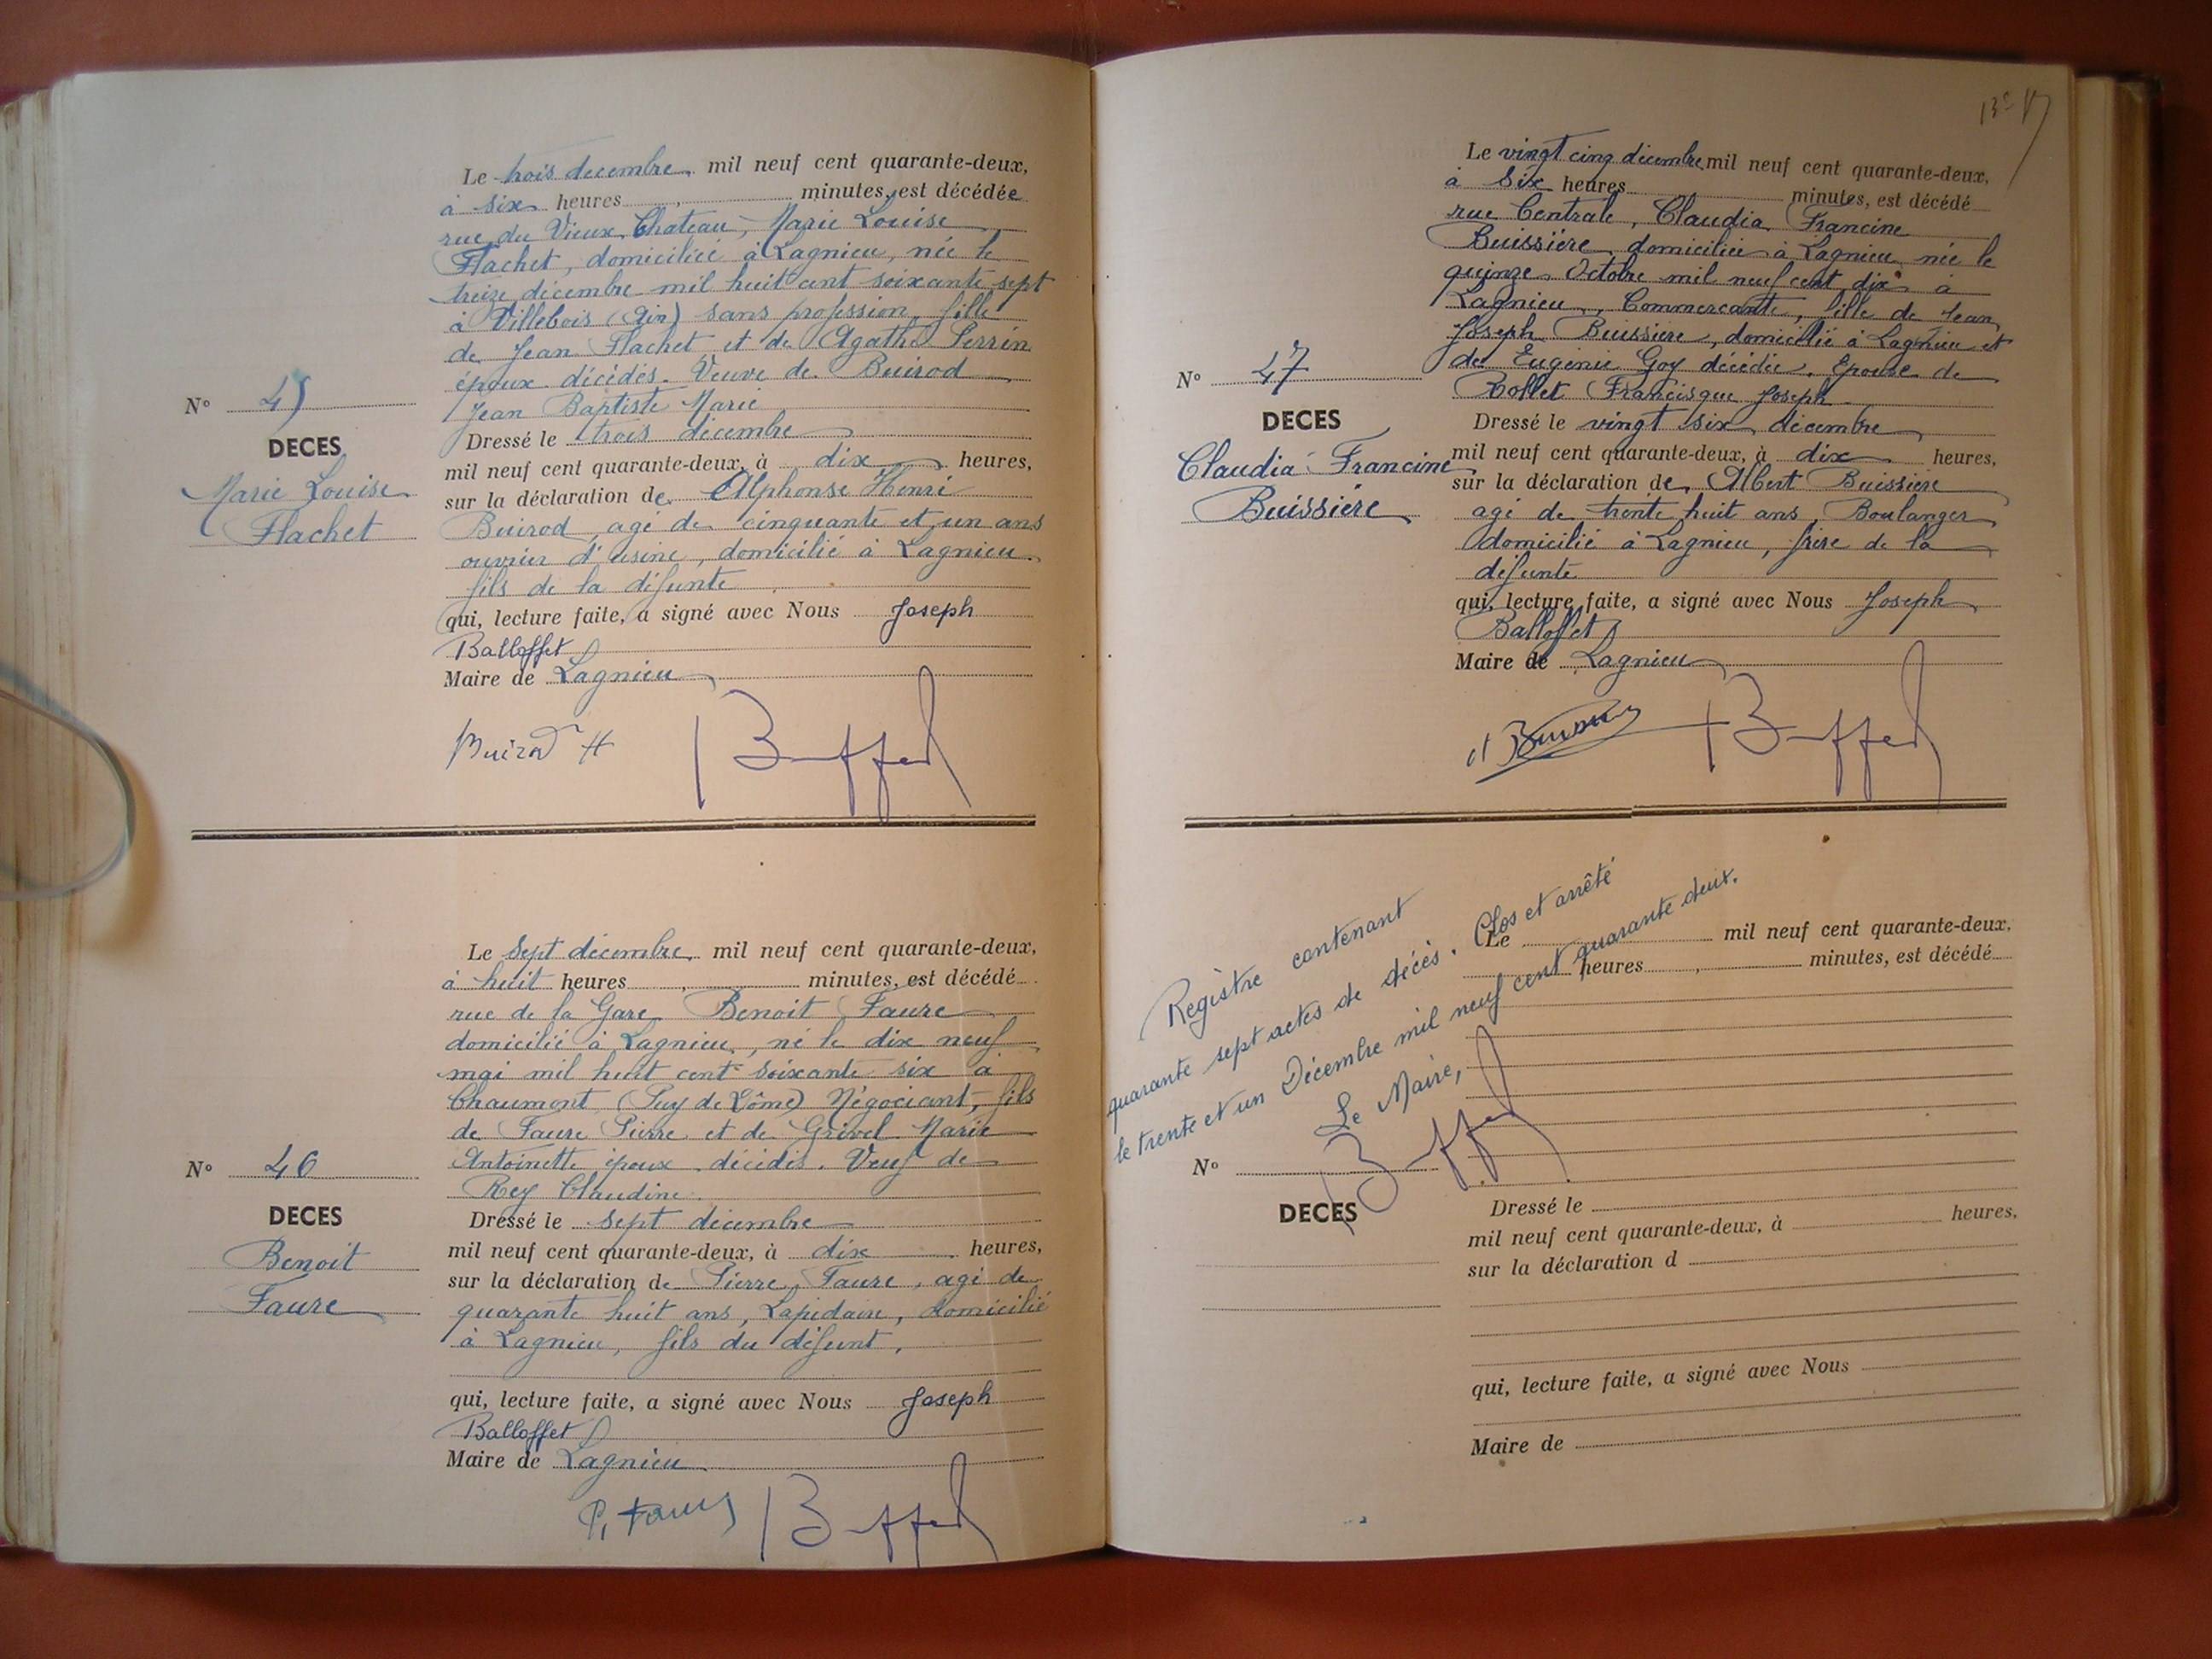 Le trois décembre, mil neuf cent quarante-deux,
à six heures , minutes, est décédée
rue du Vieux Chateau, Marie Louise
Flachet, domiciliée à Lagnieu, née le
treize décembre mil huit cent soixante sept
à Villebois (Ain) sans profession, fille
de Jean Flachet et de Agathe Perrin
époux décédés. Veuve de Buirod
Jean Baptiste Marie
Dressé le trois décembre
mil neuf cent quarante-deux, à dix heures,
sur la déclaration de Alphonse Henri
Buirod, agé de cinquante et un ans
ouvrier d'usine, domicilié à Lagnieu.
fils de la défunte
qui, lecture faite, a signé avec Nous Joseph
Balloffet
Maire de Lagnieu
Buirod H
N° 45
DECES
Marie Louise
Flachet
Le sept décembre, mil neuf cent quarante-deux,
à huit heures , minutes, est décédé
rue de la Gare Benoit Faure
domicilié à Lagnieu, né le dix neuf
mai mil huit cent soixante six à
Chaumont (Puy de Dôme) Négociant, fils
de Faure Pierre et de Grivel Marie
Antoinette époux décédés. Veuf de
Rey Claudine.
Dressé le sept décembre
mil neuf cent quarante-deux, à dix heures,
sur la déclaration de Pierre Faure, agé de
quarante huit ans, Lapidaire, domicilié
à Lagnieu, fils du défunt,
qui, lecture faite, a signé avec Nous Joseph
Balloffet
Maire de Lagnieu
P. Faure
N° 46
DECES
Benoit
Faure
Le vingt cinq décembre mil neuf cent quarante-deux,
à six heures minutes, est décédé
rue Centrale, Claudia Francine
Buissière domiciliée à Lagnieu née le
quinze Octobre mil neuf cent dix à
Lagnieu, Commercante, fille de Jean
Joseph Buissière, domicilié à Lagnieu et
de Eugenie Goy décédée. Epouse de
Rollet Francisque Joseph
Dressé le vingt six décembre
mil neuf cent quarante-deux, à dix heures,
sur la déclaration de Albert Buissière
agé de trente huit ans, Boulanger
domicilié à Lagnieu, frère de la
défunte
qui, lecture faite, a signé avec Nous Joseph
Balloffet
Maire de Lagnieu
N° 47
DECES
Claudia Francine
Buissière
Registre contenant
quarante sept actes de décès. Clos et arrêté
le trente et un Décembre mil neuf cent quarante deux.
Le Maire,
Le mil neuf cent quarante-deux,
heures , minutes, est décédé
N°
DECES
Dressé le
mil neuf cent quarante-deux, à heures,
sur la déclaration d
qui, lecture faite, a signé avec Nous
Maire de